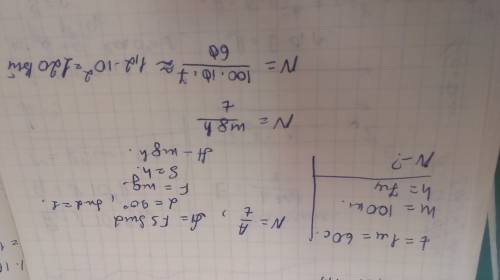 t = 1м = 60с.
m = 100кг.
h = 7м
N - ?
N = A/t, A = FS sin α
α = 90°, sin α = 1.
F = mg.
S = h.
A - mgh.
N = mgh/t
N = 100·10·7/60 ≈ 1,2·10² = 120 Вт